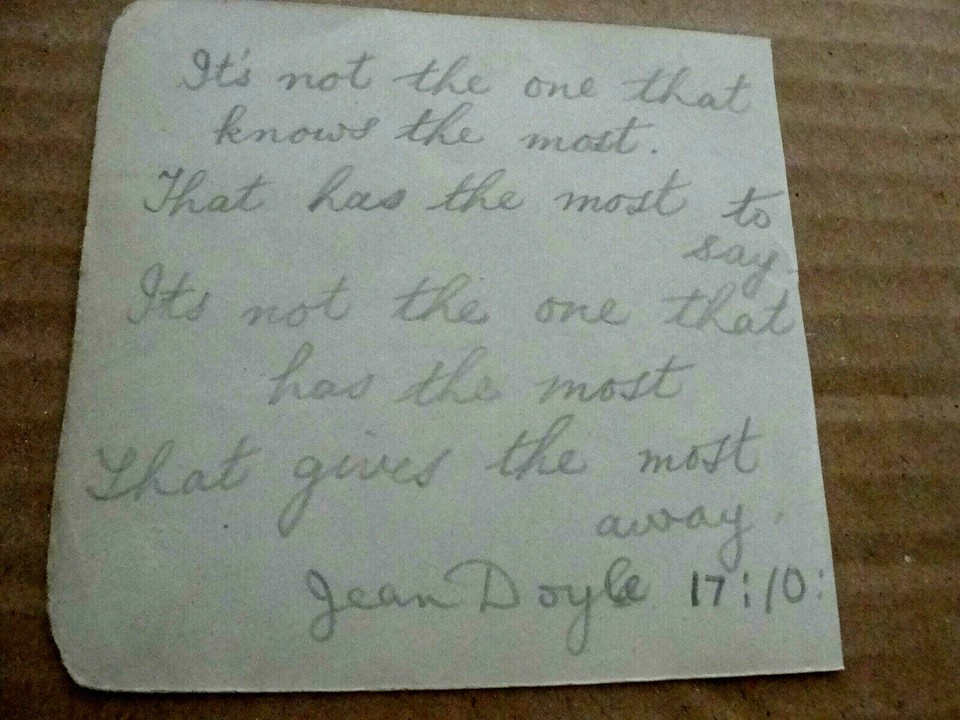 It's not the one that
knows the most.
That has the most to
say.
Its not the one that
has the most
That gives the most
away.
Jean Doyle 17:10: